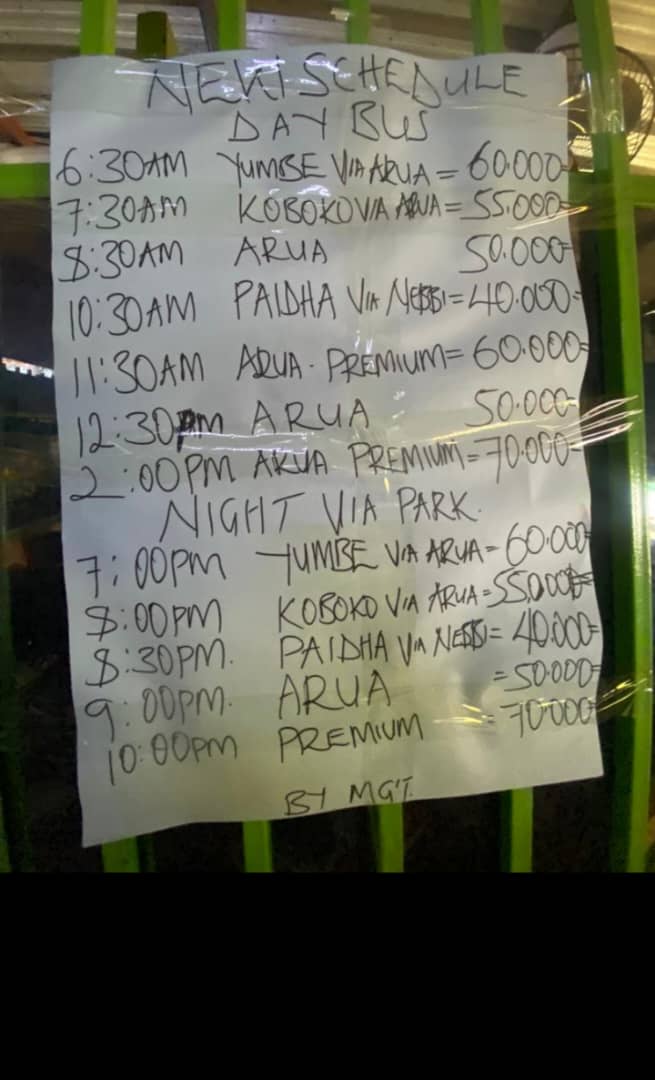 NEW SCHEDULE
DAY BUS
6:30AM YUMBE VIA ARUA = 60.000=
7:30AM KOBOKO VIA ARUA = 55.000=
8:30AM ARUA 50.000=
10:30AM PAIDHA VIA NEBBI = 40.000=
11:30AM ARUA - PREMIUM = 60.000=
12:30pm ARUA 50.000=
2:00PM ARUA PREMIUM = 70.000=
NIGHT VIA PARK.
7:00PM YUMBE VIA ARUA = 60.000=
8:00PM KOBOKO VIA ARUA = 55.000=
8:30PM. PAIDHA VIA NEBBI = 40.000=
9:00PM. ARUA = 50.000=
10:00PM PREMIUM = 70.000=
BY MG'T.